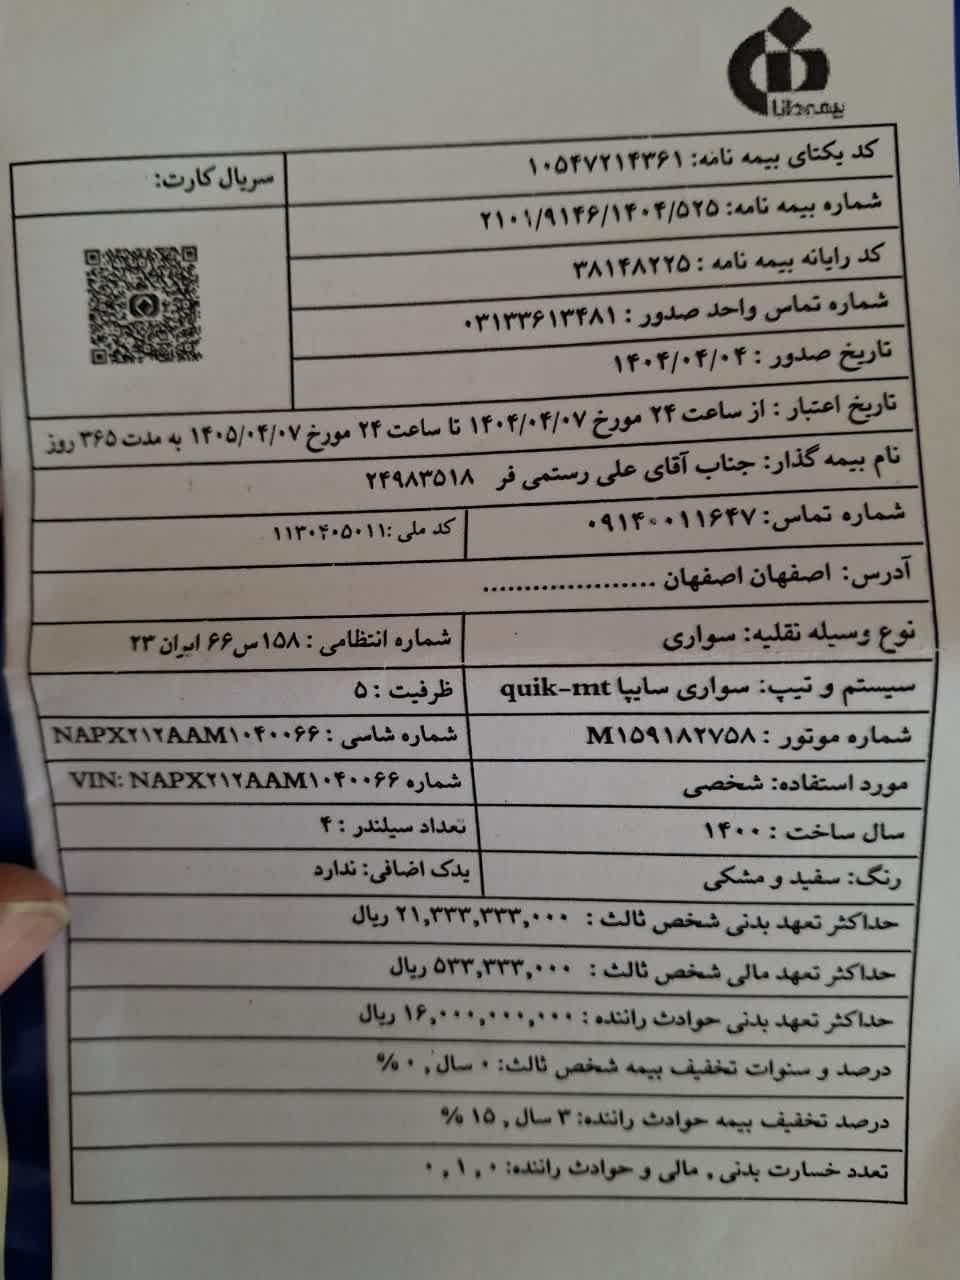 بیمه دانا
کد یکتای بیمه نامه: ۱۰۵۴۷۲۱۴۳۶۱
سریال کارت:
شماره بیمه نامه: ۲۱۰۱/۹۱۴۶/۱۴۰۴/۵۲۵
کد رایانه بیمه نامه : ۳۸۱۴۸۲۲۵
شماره تماس واحد صدور : ۰۳۱۳۳۶۱۳۴۸۱
تاریخ صدور : ۱۴۰۴/۰۴/۰۴
تاریخ اعتبار : از ساعت ۲۴ مورخ ۱۴۰۴/۰۴/۰۷ تا ساعت ۲۴ مورخ ۱۴۰۵/۰۴/۰۷ به مدت ۳۶۵ روز
نام بیمه گذار: جناب آقای علی رستمی فر ۲۴۹۸۳۵۱۸
شماره تماس: ۰۹۱۴۰۰۱۱۶۴۷
کد ملی :۱۱۳۰۴۰۵۰۱۱
آدرس: اصفهان اصفهان ....................
نوع وسیله نقلیه: سواری
شماره انتظامی : ۱۵۸س۶۶ ایران ۲۳
سیستم و تیپ: سواری سایپا quik-mt
ظرفیت : ۵
شماره موتور : M۱۵۹۱۸۲۷۵۸
شماره شاسی : NAPX۲۱۲AAM۱۰۴۰۰۶۶
مورد استفاده: شخصی
شماره VIN: NAPX۲۱۲AAM۱۰۴۰۰۶۶
سال ساخت : ۱۴۰۰
تعداد سیلندر : ۴
رنگ: سفید و مشکی
یدک اضافی: ندارد
حداکثر تعهد بدنی شخص ثالث : ۲۱,۳۳۳,۳۳۳,۰۰۰ ریال
حداکثر تعهد مالی شخص ثالث : ۵۳۳,۳۳۳,۰۰۰ ریال
حداکثر تعهد بدنی حوادث راننده : ۱۶,۰۰۰,۰۰۰,۰۰۰ ریال
درصد و سنوات تخفیف بیمه شخص ثالث: ۰ سال , ۰ %
درصد تخفیف بیمه حوادث راننده: ۳ سال , ۱۵ %
تعدد خسارت بدنی , مالی و حوادث راننده: ۰ , ۱ , ۰